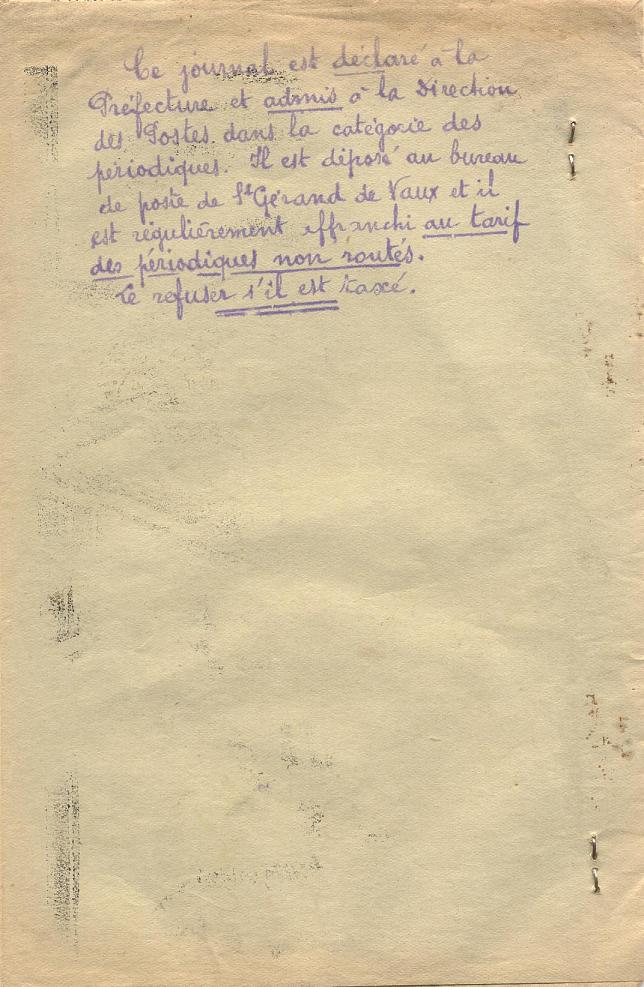 Ce journal est déclaré à la
Préfecture et admis à la Direction
des Postes dans la catégorie des
périodiques. Il est déposé au bureau
de poste de St Gérand de Vaux et il
est régulièrement affranchi au tarif
des périodiques non routés.
Le refuser s'il est taxé.